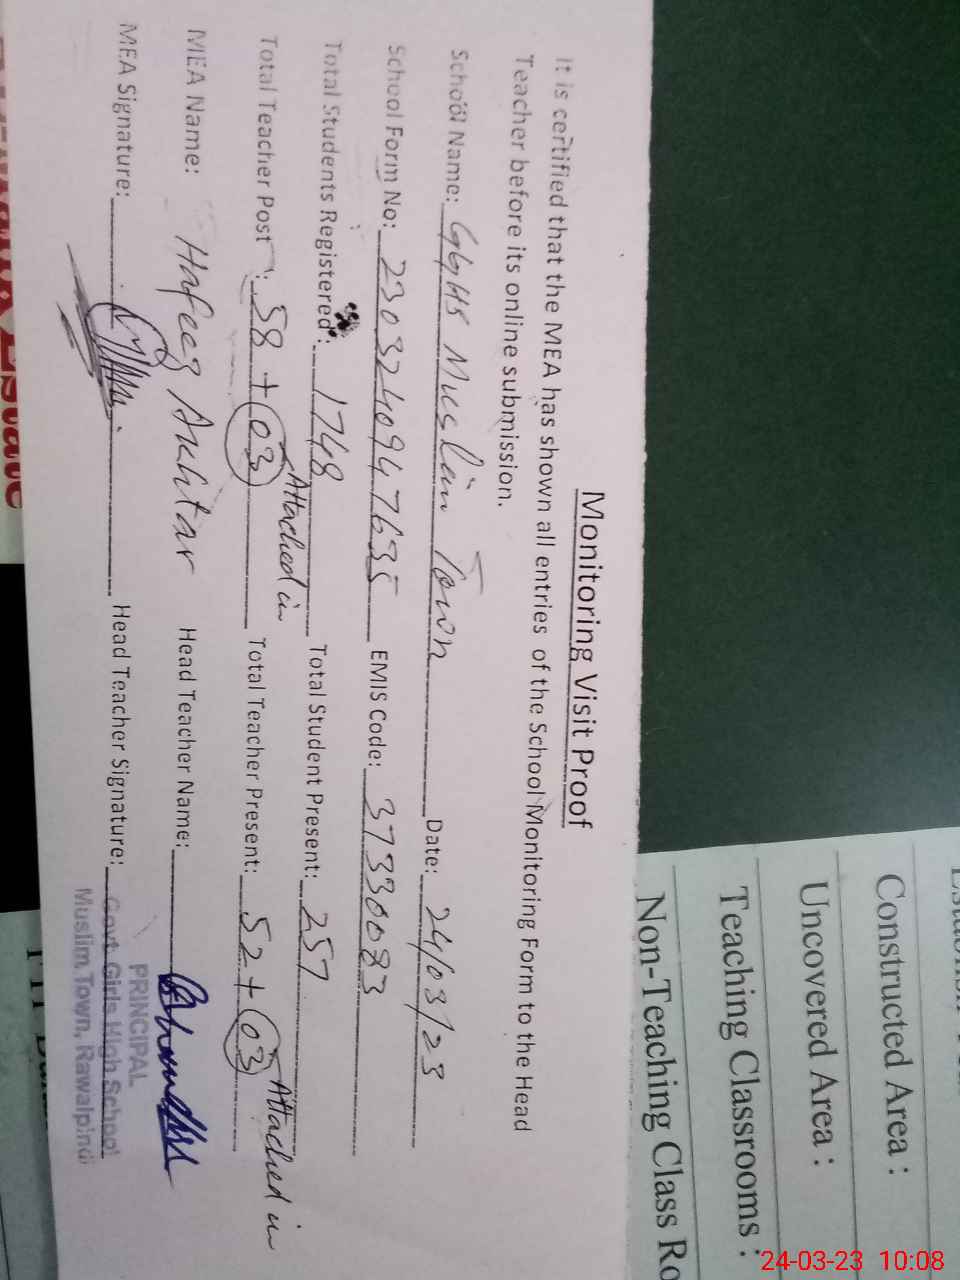 Monitoring Visit Proof
It is certified that the MEA has shown all entries of the School Monitoring Form to the Head
Teacher before its online submission.
School Name: GGHS Muslim Town Date: 24/03/23
School Form No: 2303240947635 EMIS Code: 37330083
Total Students Registered: 1748 Total Student Present: 257
Attached in Attached in
Total Teacher Post : 58 + 03 Total Teacher Present: 52 + 03
MEA Name: Hafeez Akhtar Head Teacher Name:
MEA Signature: Head Teacher Signature:
PRINCIPAL
Govt: Girls High School
Muslim Town, Rawalpindi
Constructed Area :
Uncovered Area :
Teaching Classrooms :
Non-Teaching Class Ro
Estate
24-03-23 10:08